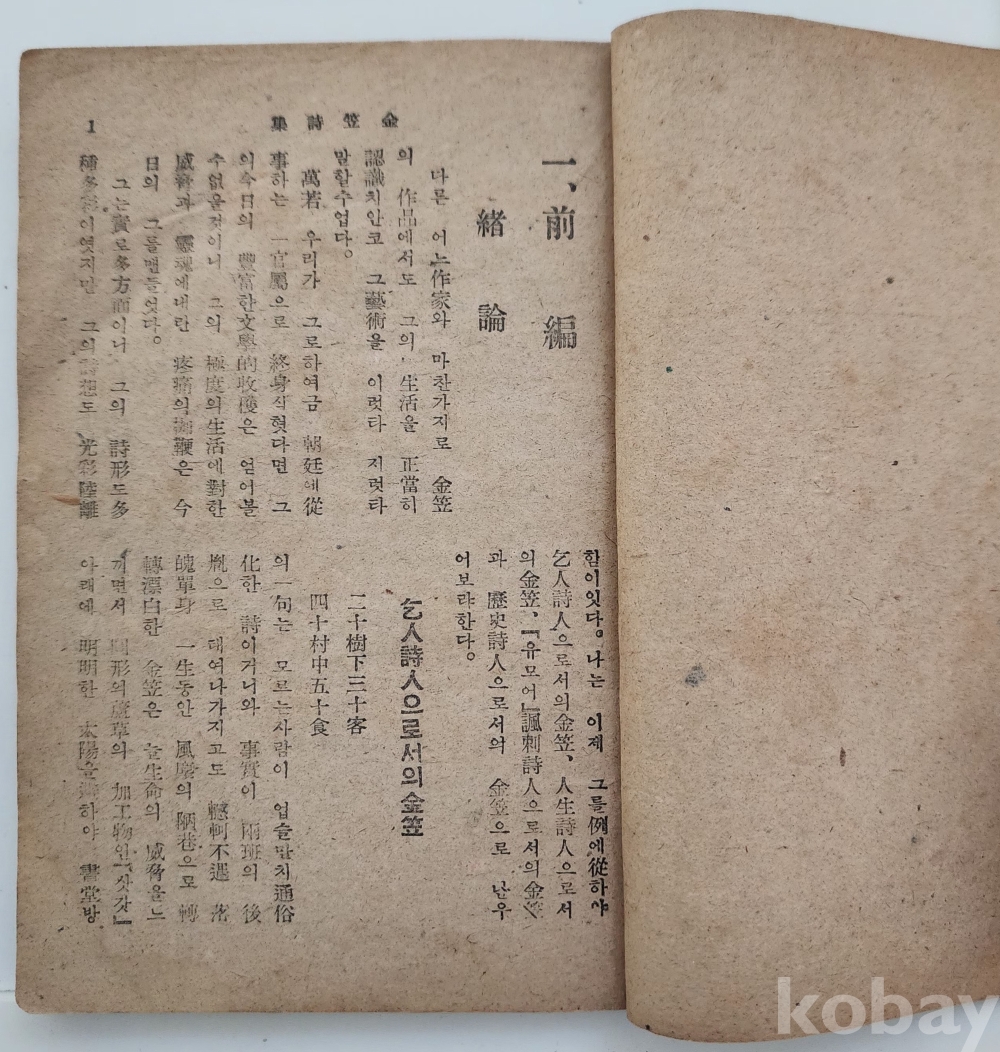 金笠詩集
1
一、前編
緖論
다른 어느作家와 마찬가지로 金笠
의 作品에서도 그의 生活을 正當히
認識치안코 그藝術을 이럿타 저럿타
말할수업다。
萬若 우리가 그로하여금 朝廷에從
事하는 一官屬으로 終身식혓다면 그
의今日의 豐富한文學的收穫은 얻어볼
수없을것이니 그의 極度의生活에對한
威脅과 靈魂에대란 疼痛의 은 今
日의 그를맨들엇다。
그는實로多方面이니 그의 詩形도多
種多彩이엿지만 그의詩想도 光彩陸離
함이잇다。나는 이제 그를例에從하야
乞人詩人으로서의金笠、人生詩人으로서
의金笠、「유모어」諷刺詩人으로서의金笠
과 歷史詩人으로서의 金笠으로 난우
어보랴한다。
乞人詩人으로서의金笠
二十樹下三十客
四十村中五十食
의一句는 모르는사람이 업슬만치通俗
化한 詩이거니와 事實이 兩班의 後
胤으로 태여나가지고도 轗軻不遇 落
魄單身 一生동안 風塵의 陋巷으로 轉
轉漂白한 金笠은 늘生命의 威脅을느
끼면서 圓形의蘆草의 加工物인「삿갓」
아래에 明明한 太陽을 하야 書堂방
kobay